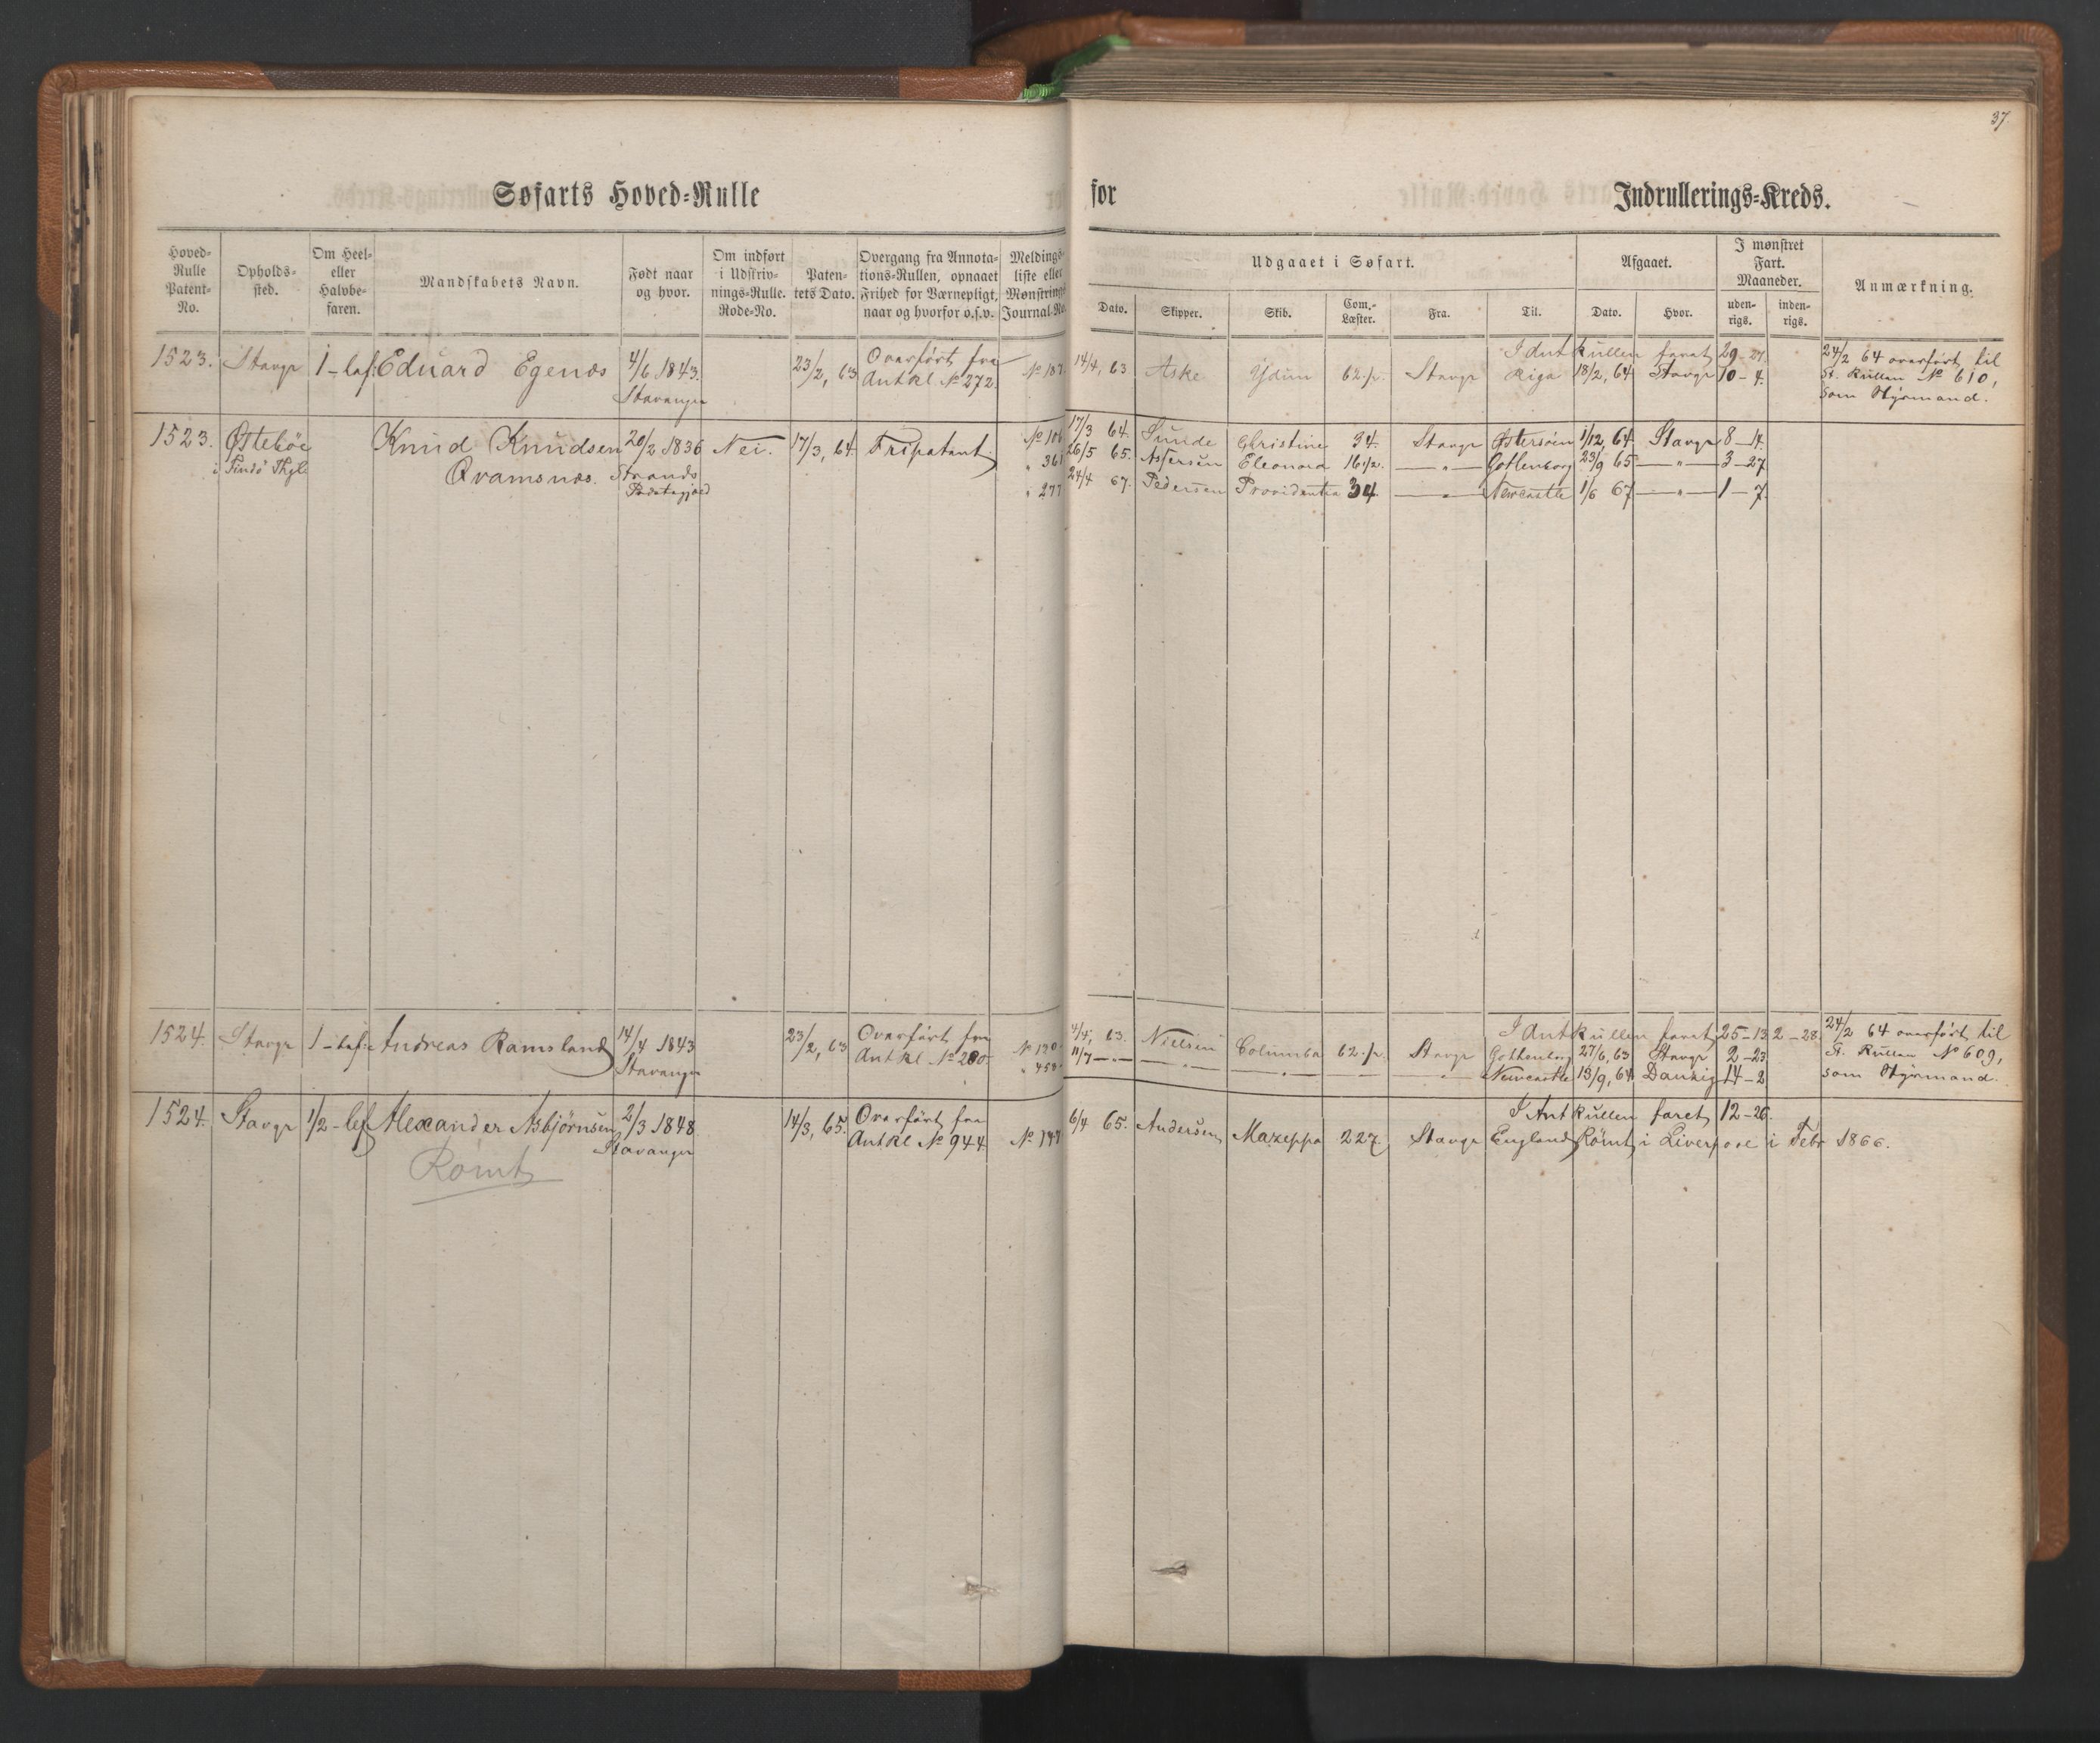 37.
Søfarts Hoved-Rulle
for
Indrullerings-Kreds.
Hoved-Rulle Patent-No.
Opholds-sted.
Om Heel- eller Halvbe-faren.
Mandskabets Navn.
Født naar og hvor.
Om indført i Udskriv-nings-Rulle. Rode-No.
Paten-tets Dato.
Overgang fra Annota-tions-Rullen, opnaaet Frihed for Værnepligt, naar og hvorfor o.s.v.
Meldings-liste eller Mønstrings Journal-No.
Udgaaet i Søfart.
Afgaaet.
I mønstret Fart. Maaneder.
Anmærkning.
Dato.
Skipper.
Skib.
Com.-Læster.
Fra.
Til.
Dato.
Hvor.
uden-rigs.
inden-rigs.
1523. Stavgr 1-bef: Eduard Egenæs 4/6 1843. 23/2, 63 Overført fra No 187. 14/4, 63 Aske Ydun 62 1/2. Stavgr I Antrullen faret 29-27. 24/2 64 overført til
Stavanger Antrl. No 272. Riga 18/2, 64 Stavgr 10-4. St. Rullen No 610,
som Styrmand.
1523. Østebøe Knud Knudsen 20/2 1836 Nei. 17/3, 64 Fripatent No 106 17/3 64. Sunde Christine 34. Stavgr Østersøen 1/12, 64 Stavgr 8-14.
i Qvamsnæs. Strands " 361 26/5 65. Eleonora 16 1/2. —"— Gothenborg 23/9 65 —"— 3-27
Præstegjæld " 277 24/4 67. Pedersen Providentia 34. —"— Newcastle 1/6 67 —"— 1-7.
1524. Stavgr 1-bef: Andreas Ramsland 14/4 1843 23/2, 63 Overført fra No 120 4/4, 63. Nielsen Columba 62 1/2. Stavgr I Antrullen faret 25-13 2-28. 24/2 64 overført til
Stavanger Antrl No 280. " 458 11/7 —"— —"— Gothenborg 27/6, 63 Stavgr 2-23 St. Rullen No 609,
" Newcastle 13/9, 64 Danzig 14-2 som Styrmand.
1524. Stavgr 1/2-bef Alexander Asbjørnsen 2/3 1848 14/3, 65. Overført fra I Antrullen faret 12-26.
Stavanger Antrl No 944. No 147 6/4 65. Andersen Mazeppa 227. Stavgr England Rømt i Liverpool i Febr 1866.
Rømt